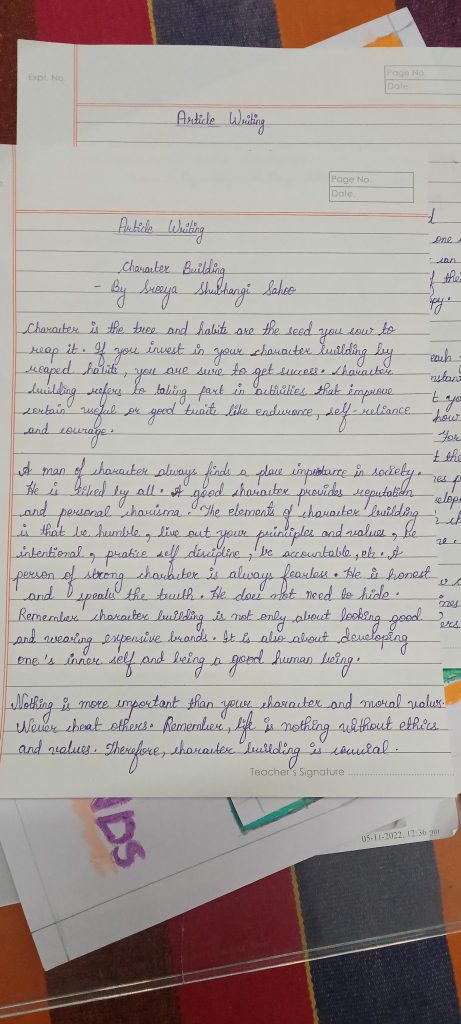 Expt. No.
Page No.
Date.
Article Writing
Page No.
Date.
Article Writing
Character Building
- By Sreeya Shubhangi Sahoo
Character is the tree and habits are the seed you sow to
reap it. If you invest in your character building by
reaped habits, you are sure to get success. Character
building refers to taking part in activities that improve
certain useful or good traits like endurance, self-reliance
and courage.
A man of character always finds a place importance in society.
He is liked by all. A good character provides reputation
and personal charisma. The elements of character building
is that be humble, live out your principles and values, be
intentional, pratice self discipline, be accountable, etc. A
person of strong character is always fearless. He is honest
and speaks the truth. He does not need to hide.
Remember character building is not only about looking good
and wearing expensive brands. It is also about developing
one's inner self and being a good human being.
Nothing is more important than your character and moral values.
Never cheat others. Remember, life is nothing without ethics
and values. Therefore, character building is crucial.
Teacher's Signature
NDS
05-11-2022, 12:36 pm